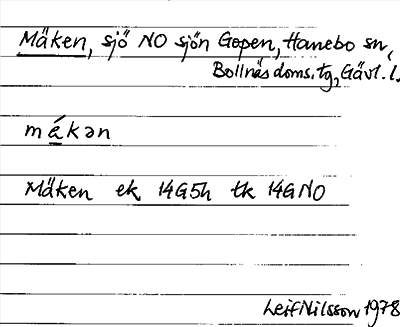 Mäken, sjö NO sjön Gopen, Hanebo sn,
Bollnäs doms. tg, Gävl. l.
mä́kən
Mäken ek 14G5h tk 14GNO
Leif Nilsson 1978